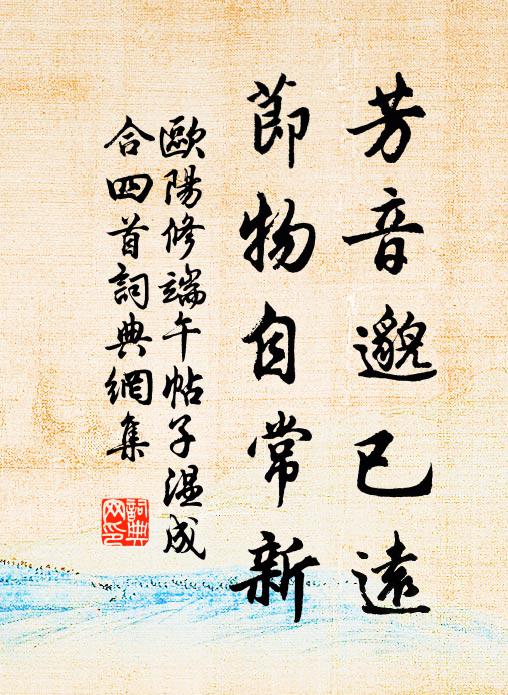 芳音邈已遠
節物自常新
歐陽修端午帖子溫成
合四首詞典網集
詞典
网印